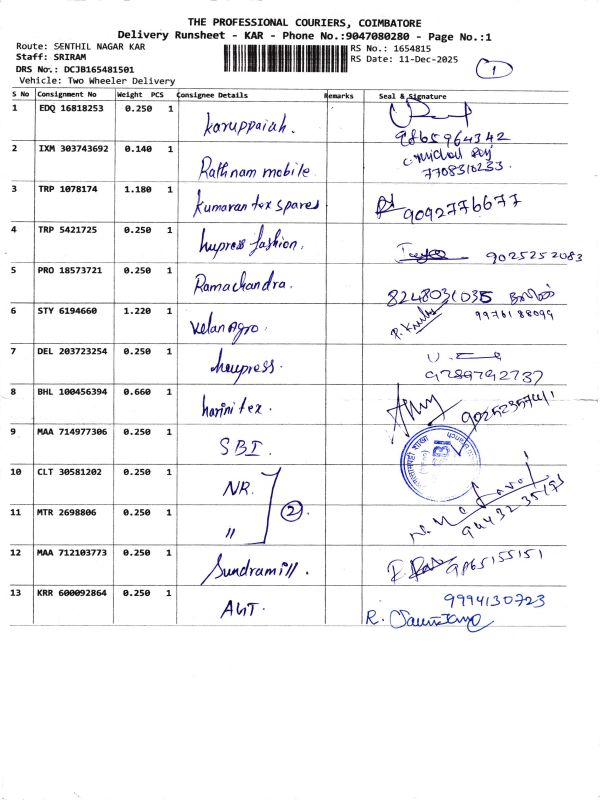 THE PROFESSIONAL COURIERS, COIMBATORE
Delivery Runsheet - KAR - Phone No.:9047080280 - Page No.:1
Route: SENTHIL NAGAR KAR RS No.: 1654815
Staff: SRIRAM RS Date: 11-Dec-2025
DRS No.: DCJB165481501 1
Vehicle: Two Wheeler Delivery
S No Consignment No Weight PCS Consignee Details Remarks Seal & Signature
1 EDQ 16818253 0.250 1 Karuppaiah. 9865964342
2 IXM 303743692 0.140 1 Rathnam mobile 7708310233.
3 TRP 1078174 1.180 1 Kumaran tex spares 9092776677
4 TRP 5421725 0.250 1 fashion. 9025252083
5 PRO 18573721 0.250 1 Ramachandra. 8248031035
6 STY 6194660 1.220 1 Velan Agro. 9976188099
7 DEL 203723254 0.250 1 9789792737
8 BHL 100456394 0.660 1 harini tex.
9 MAA 714977306 0.250 1 SBI.
10 CLT 30581202 0.250 1 NR.
11 MTR 2698806 0.250 1 " 2.
12 MAA 712103773 0.250 1 Sundramill. 9865155151
13 KRR 600092864 0.250 1 9994130723
R.